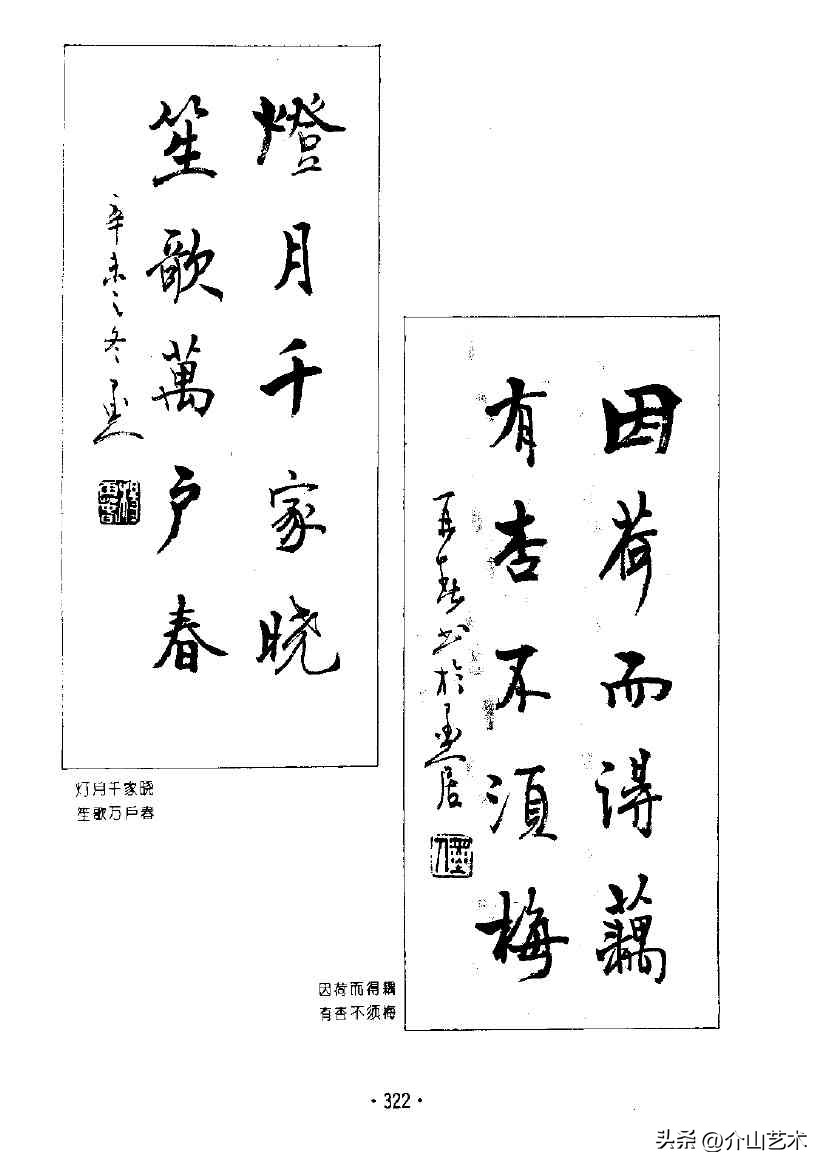 燈月千家晓
笙歌萬户春
辛未之冬
灯月千家晓
笙歌万户春
因荷而得藕
有杏不须梅
书於
居
因荷而得耦
有杏不须梅
·322·
头条 @介山艺术